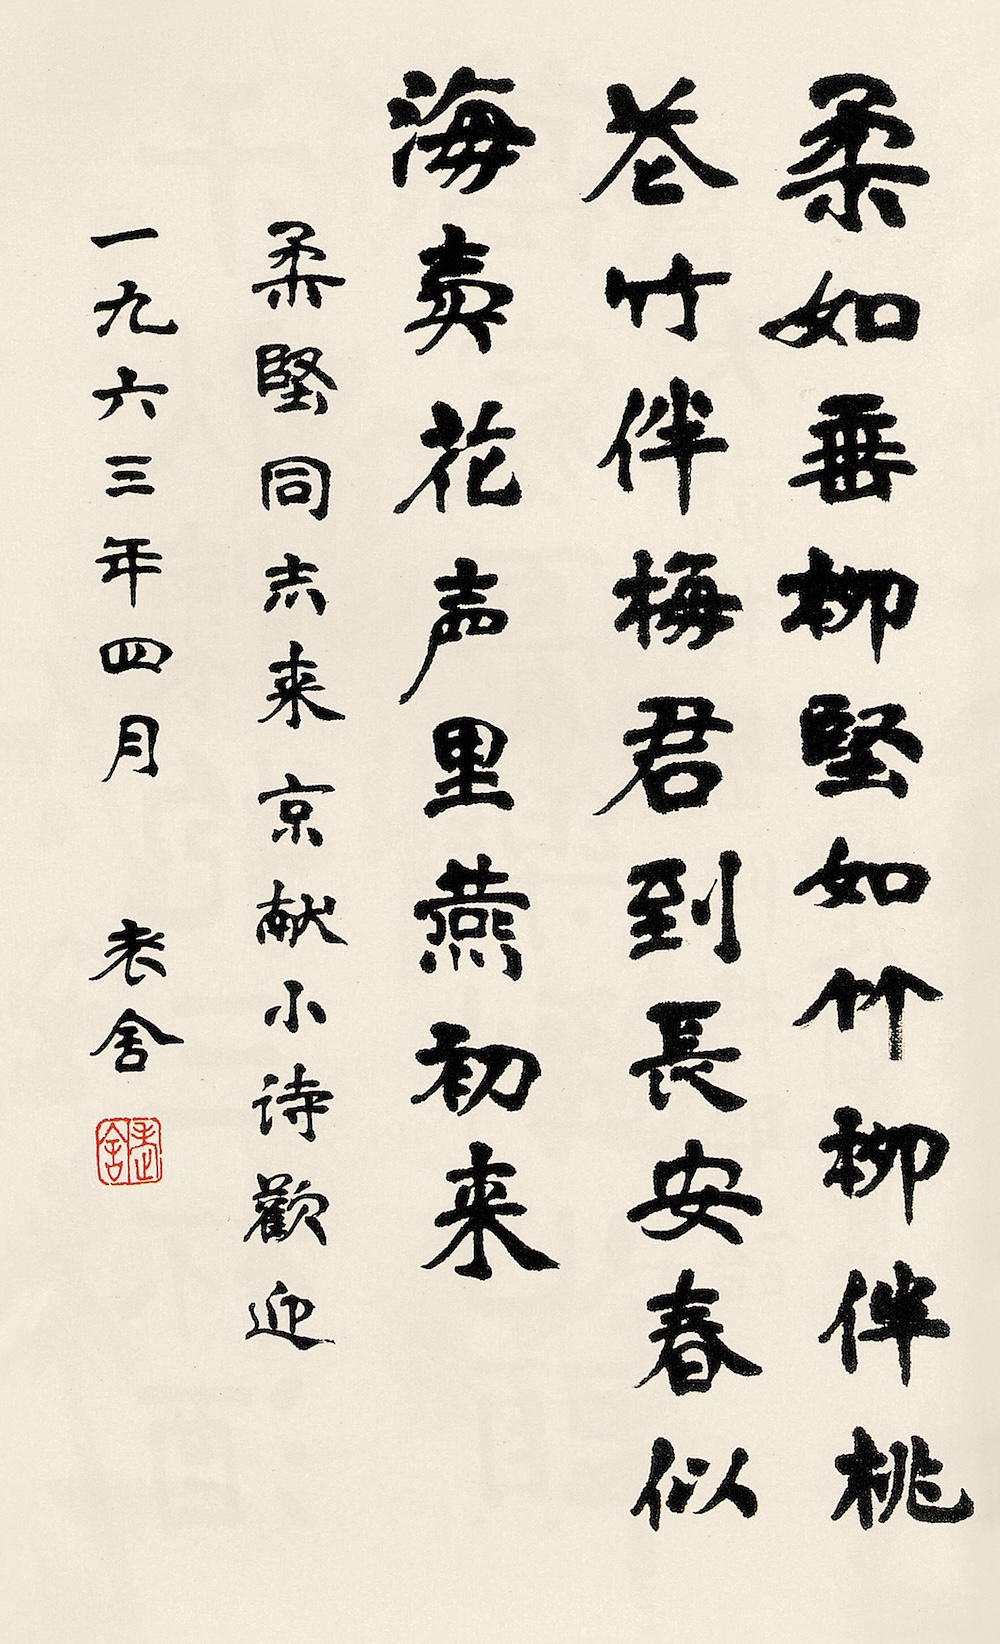 柔如垂柳堅如竹柳伴桃
花竹伴梅君到長安春似
海卖花声里燕初来
柔堅同志来京献小诗歡迎
一九六三年四月 老舍
老舍